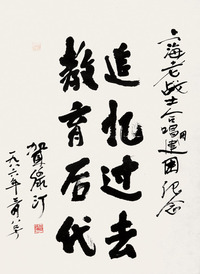 上海老战士合唱团建团纪念
追忆过去
教育后代
贺绿汀
一九八六年